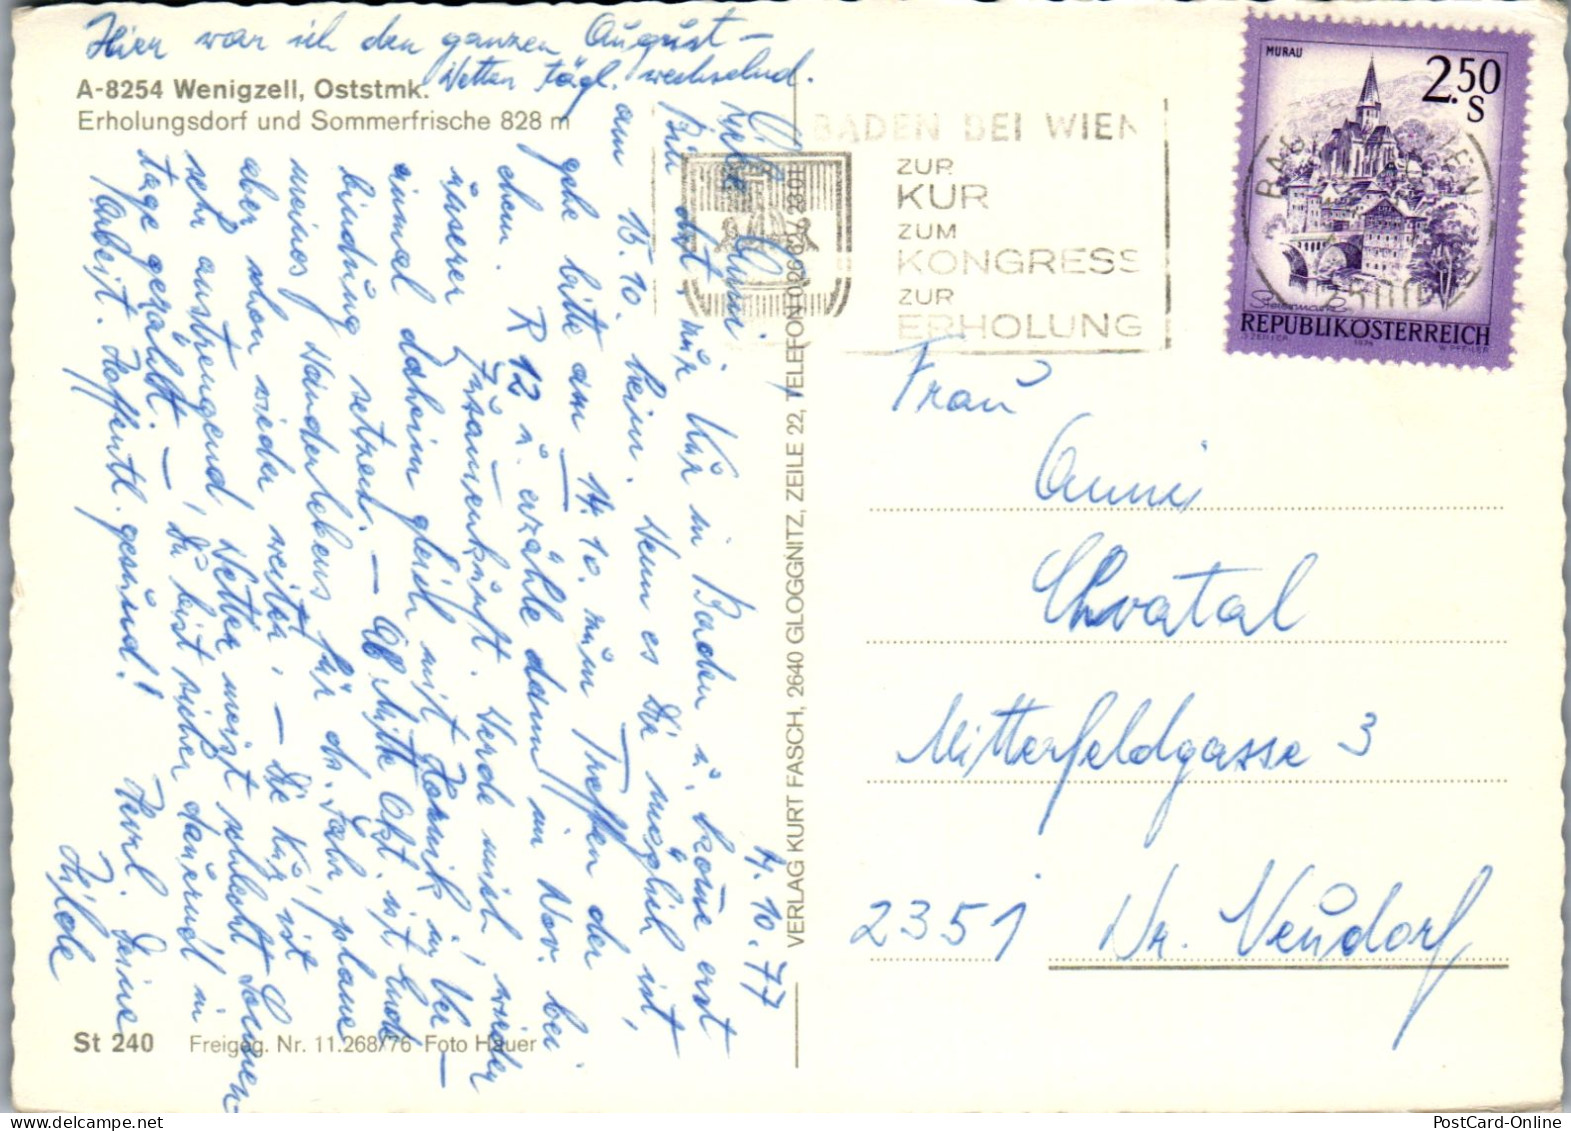 Hier war ich den ganzen August –
Wetter tägl. wechselnd.
A-8254 Wenigzell, Oststmk.
Erholungsdorf und Sommerfrische 828 m
4.10.77
Liebe Anni!
Bin dzt. zur Kur in Baden u. komme erst
am 15.10. heim. Wenn es Dir möglich ist,
gehe bitte am 14.10. zum Treffen der
R 12 u. erzähle dann im Nov. bei
unserer Zusammenkunft. Werde mich, wieder
einmal daheim gleich mit in Ver-
bindung setzen. – Ab Mitte Okt. ist Ende
meines Wanderlebens für ds. Jahr, plane
aber schon wieder weiter. – Die Kur ist
sehr anstrengend, Wetter meist schlecht, Sonnen-
tage gezählt. – Du bist sicher dauernd in
Arbeit. Hoffentl. gesund! Herzl. Deine
Hilde
St 240 Freigeg. Nr. 11.268/76 Foto Hauer
VERLAG KURT FASCH, 2640 GLOGGNITZ, ZEILE 22, TELEFON
BADEN BEI WIEN
ZUR
KUR
ZUM
KONGRESS
ZUR
ERHOLUNG
MURAU
2.50
S
REPUBLIK ÖSTERREICH
Frau
Anni
Chvatal
Mitterfeldgasse 3
2351 Wr. Neudorf
PostCard-Online